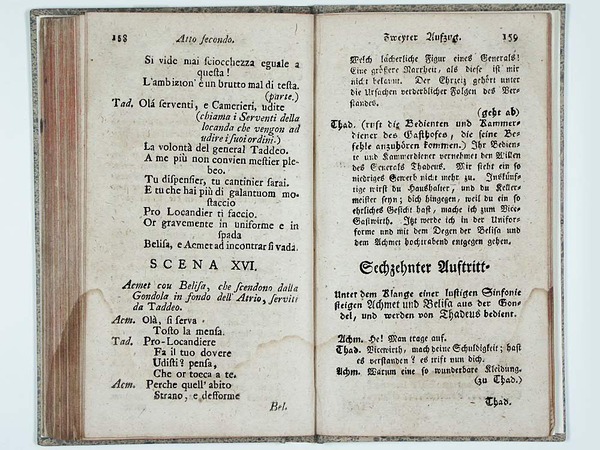 158 Atto secondo.
Si vide mai sciocchezza eguale a
questa!
L'ambizion' è un brutto mal di testa.
(parte.)
Tad. Olá serventi, e Camerieri, udite
(chiama i Serventi della
locanda che vengon ad
udire i suoi ordini.)
La volontà del general Taddeo.
A me più non convien mestier ple-
beo.
Tu dispensier, tu cantinier sarai.
E tu che hai più di galantuom mo-
staccio
Pro Locandier ti faccio.
Or gravemente in uniforme e in
spada
Belisa, e Acmet ad incontrar si vada.
SCENA XVI.
Acmet con Belisa, che scendono dalla
Gondola in fondo dell' Atrio, serviti
da Taddeo.
Acm. Olà, si serva
Tosto la mensa.
Tad. Pro-Locandiere
Fa il tuo dovere
Udisti? pensa,
Che or tocca a te.
Acm. Perche quell' abito
Strano, e defforme
Bel.
Zweyter Aufzug. 159
Welch lächerliche Figur eines Generals!
Eine größere Narrheit, als diese ist mir
nicht bekannt. Der Ehrgeiz gehört unter
die Ursachen verderblicher Folgen des Ver-
standes.
(geht ab)
Thad. (ruft die Bedienten und Kammer-
diener des Gasthofes, die seine Be-
fehle anzuhören kommen.) Ihr Bedien-
te und Kammerdiener vernehmet den Willen
des Generals Thadeus. Mir steht ein so
niedriges Gewerb nicht mehr zu. Inskünf-
tige wirst du Haushalter, und du Keller-
meister seyn; dich hingegen, weil du ein so
ehrliches Gesicht hast, mache ich zum Vice-
Gastwirth. Itzt werde ich in der Unifor-
forme und mit dem Degen der Belisa und
dem Achmet hochtrabend entgegen gehen.
Sechzehnter Auftritt.
Unter dem Klange einer lustigen Sinfonie
steigen Achmet und Belisa aus der Gon-
del, und werden von Thadeus bedient.
Achm. He! Man trage auf.
Thad. Vicewirth, mach deine Schuldigkeit; hast
es verstanden? es trift nun dich.
Achm. Warum eine so wunderbare Kleidung.
(zu Thad.)
Thad.